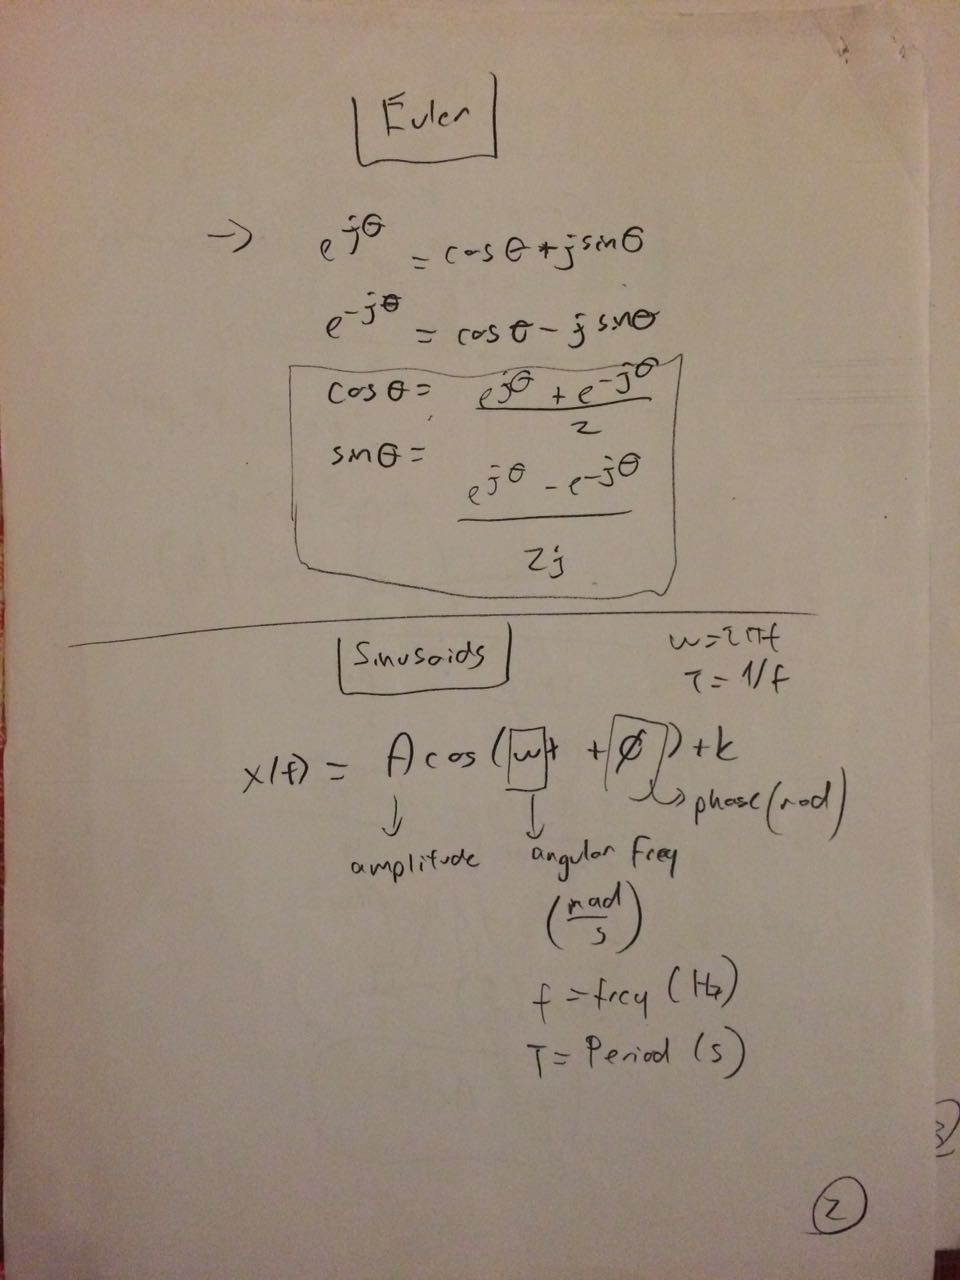 Euler
→ e^jθ = cosθ + jsinθ
e^-jθ = cosθ - jsinθ
cosθ = (e^jθ + e^-jθ)/2
sinθ = (e^jθ - e^-jθ)/2j
Sinusoids
w=2πf
T=1/f
x(t) = Acos(wt + φ) + k
phase(rad)
amplitude
angular freq
(rad/s)
f = freq (Hz)
T = Period (s)
2